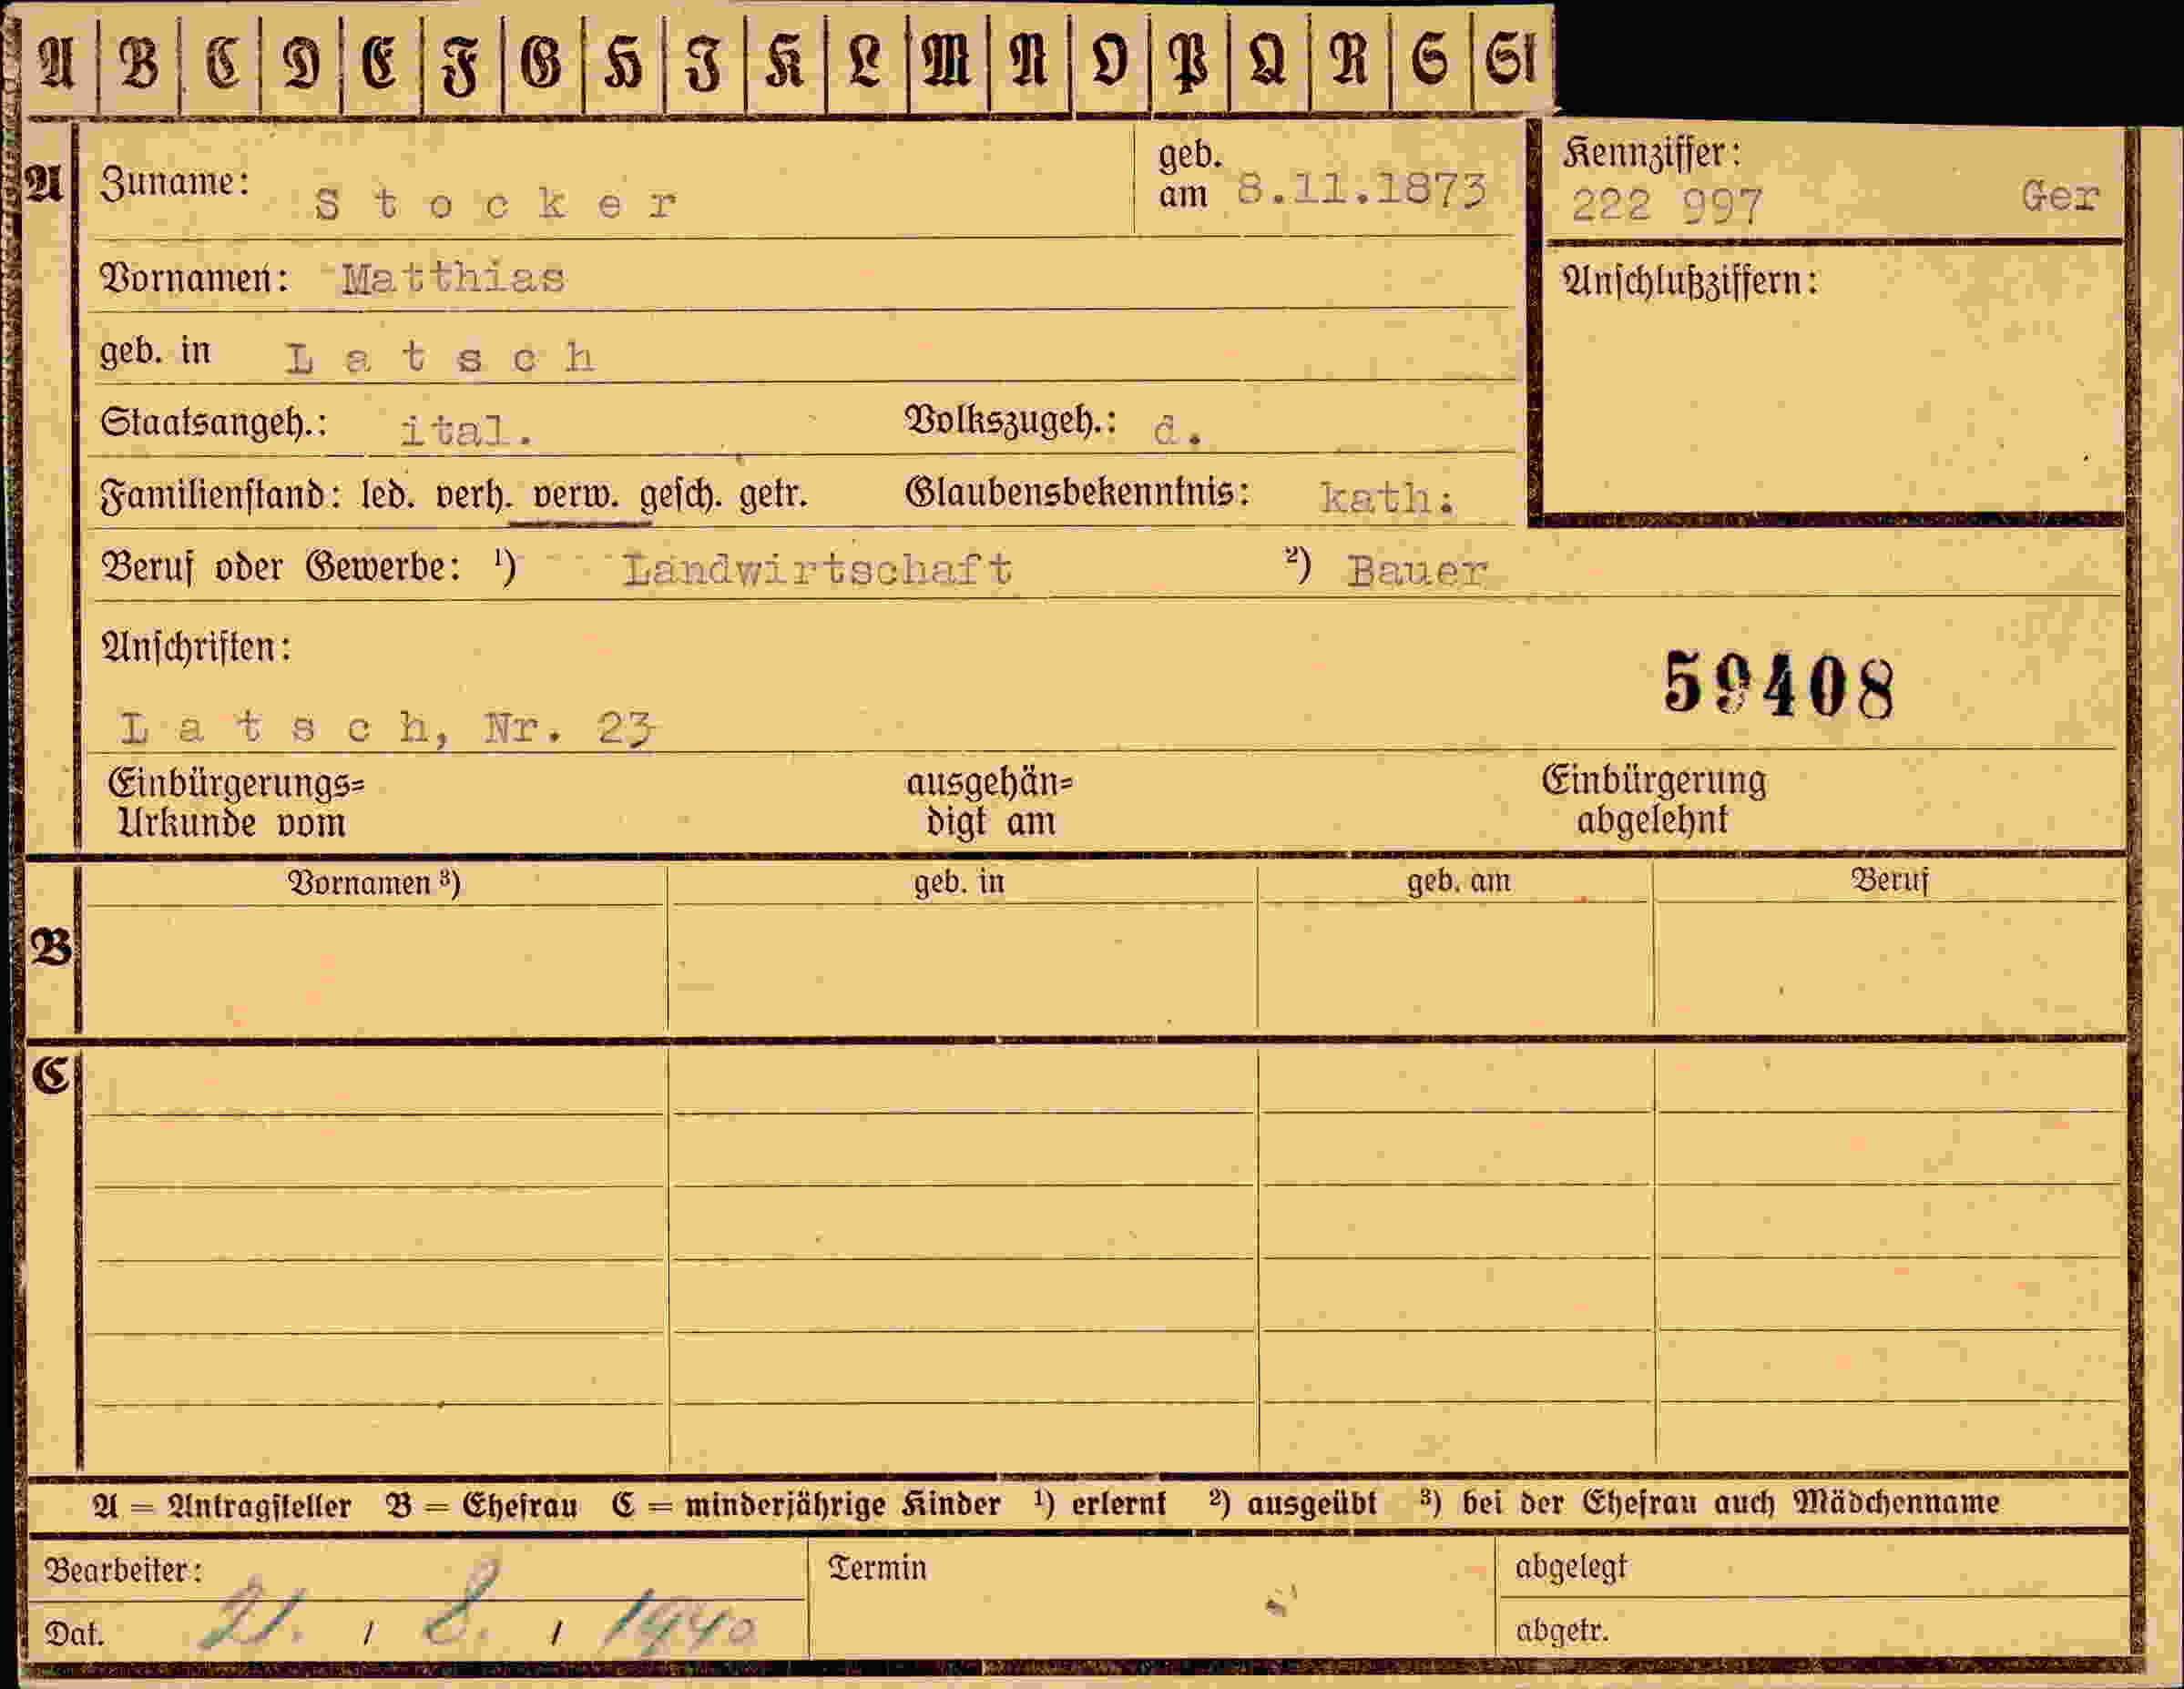 A B C D E F G H I K L M N O P Q R S St
A Zuname: Stocker geb. am 8.11.1873 Kennziffer: 222 997 Ger
Vornamen: Matthias Anschlußziffern:
geb. in Latsch
Staatsangeh.: ital. Volkszugeh.: d.
Familienstand: led. verh. verw. gesch. getr. Glaubensbekenntnis: kath:
Beruf oder Gewerbe: ¹) Landwirtschaft ²) Bauer
Anschriften:
59408
Latsch, Nr. 23
Einbürgerungs= ausgehän= Einbürgerung
Urkunde vom digt am abgelehnt
Vornamen ³) geb. in geb. am Beruf
B
C
A = Antragsteller B = Ehefrau C = minderjährige Kinder ¹) erlernt ²) ausgeübt ³) bei der Ehefrau auch Mädchenname
Bearbeiter: Termin abgelegt
Dat. 21. / 8. / 1940 abgetr.